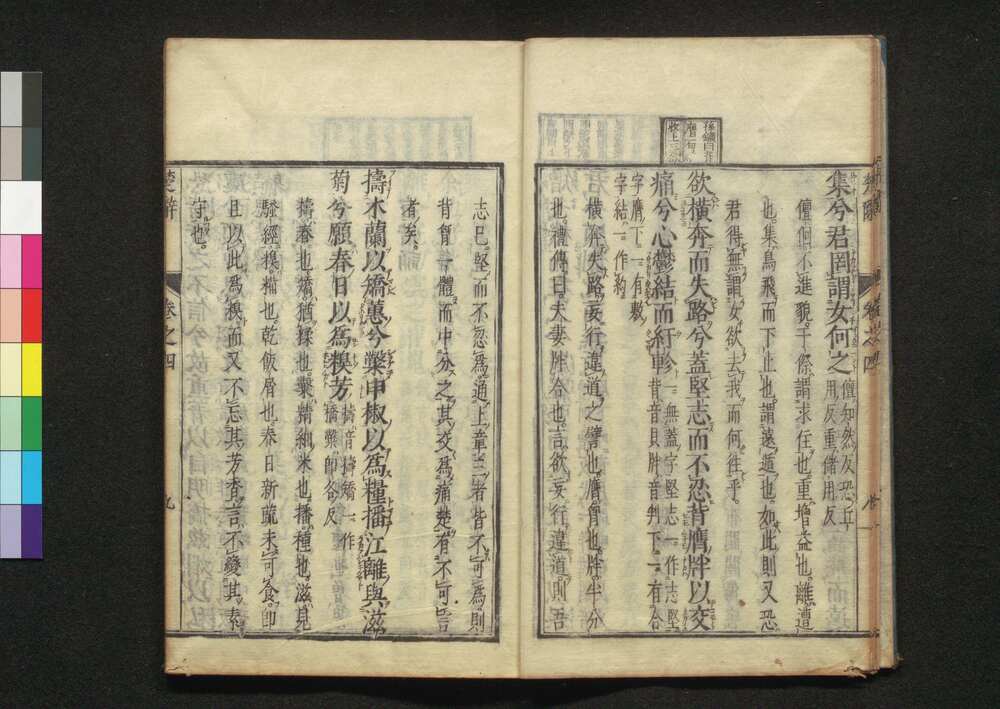 集兮君罔謂女何之儃知然反恐丘
用反重儲用反
儃佪不進貌干傺謂求住也重增益也離遭
也集鳥飛而下止也謂遠遁也如此則又恐
君得無謂女欲去我而何往乎
欲橫奔而失路兮蓋堅志而不忍背膺牉以交
痛兮心鬱結而紆軫一無蓋字堅志一作志堅
背音貝牉音判下一有合
字膺下一有敷
字結一作約
橫奔失路妄行違道之譬也膺胷也牉半分
也禮傳曰夫妻牉合也言欲妄行違道則吾
志已堅而不忍爲通上章三者皆不可爲則
背胷一體而中分之其交爲痛楚有不可言
者矣
擣木蘭以矯蕙兮糳申椒以爲糧播江離與滋
菊兮願春日以爲糗芳擣音擣矯一作
撟糳卽各反
擣舂也矯猶揉也糳精細米也播種也滋見
騷經糗糒也乾飯屑也春日新蔬未可食卽
且以此爲糗而又不忘其芳香言不變其素
守也
楚辭
卷之四
九